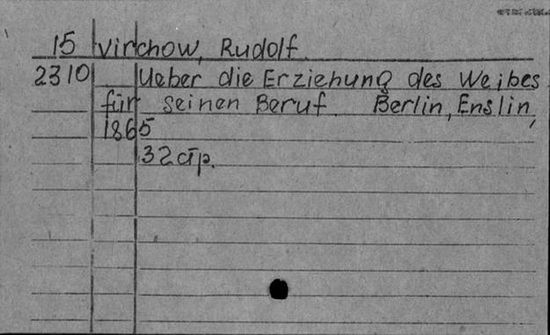 15 Virchow, Rudolf
2310 Ueber die Erziehung des Weibes
für seinen Beruf. Berlin, Enslin,
1865
32 стр.